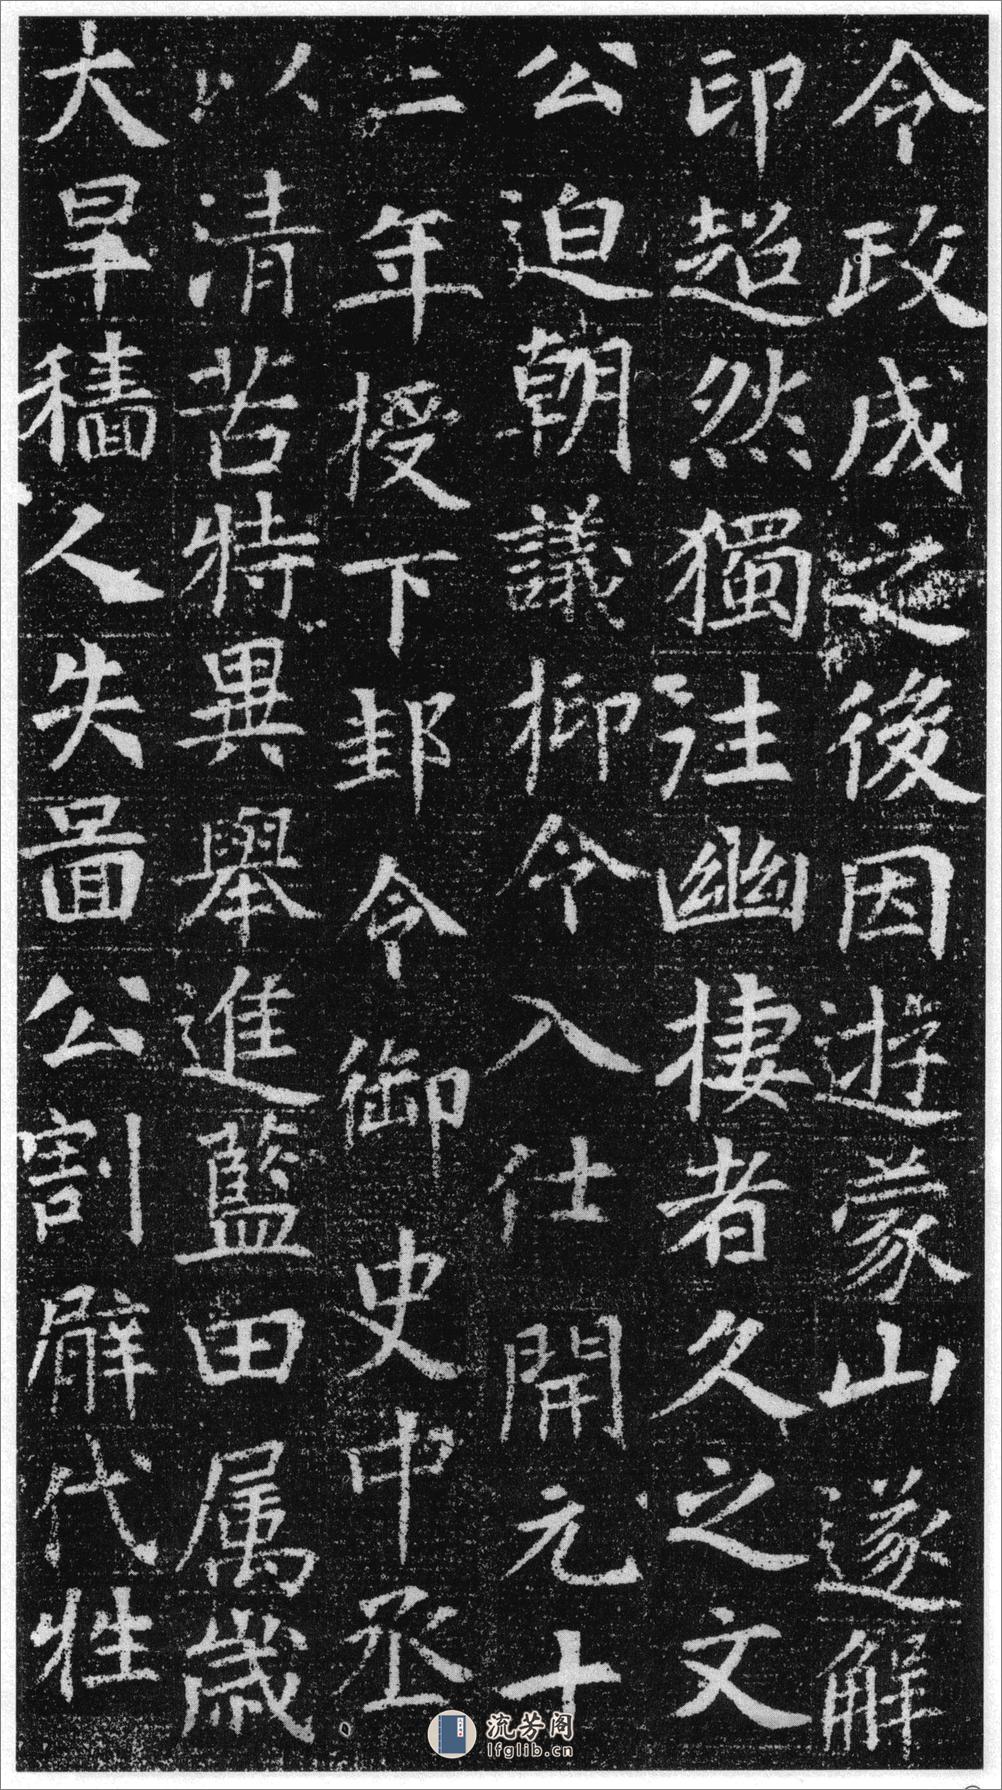 令政成之後因遊蒙山遂解
印超然獨注幽棲者久之文
公迫朝議抑令入仕開元十
二年授下邽令御史中丞
以清苦特異舉進藍田属歳
大旱穡人失啚公割臂代牲
流芳阁
lfglib.cn